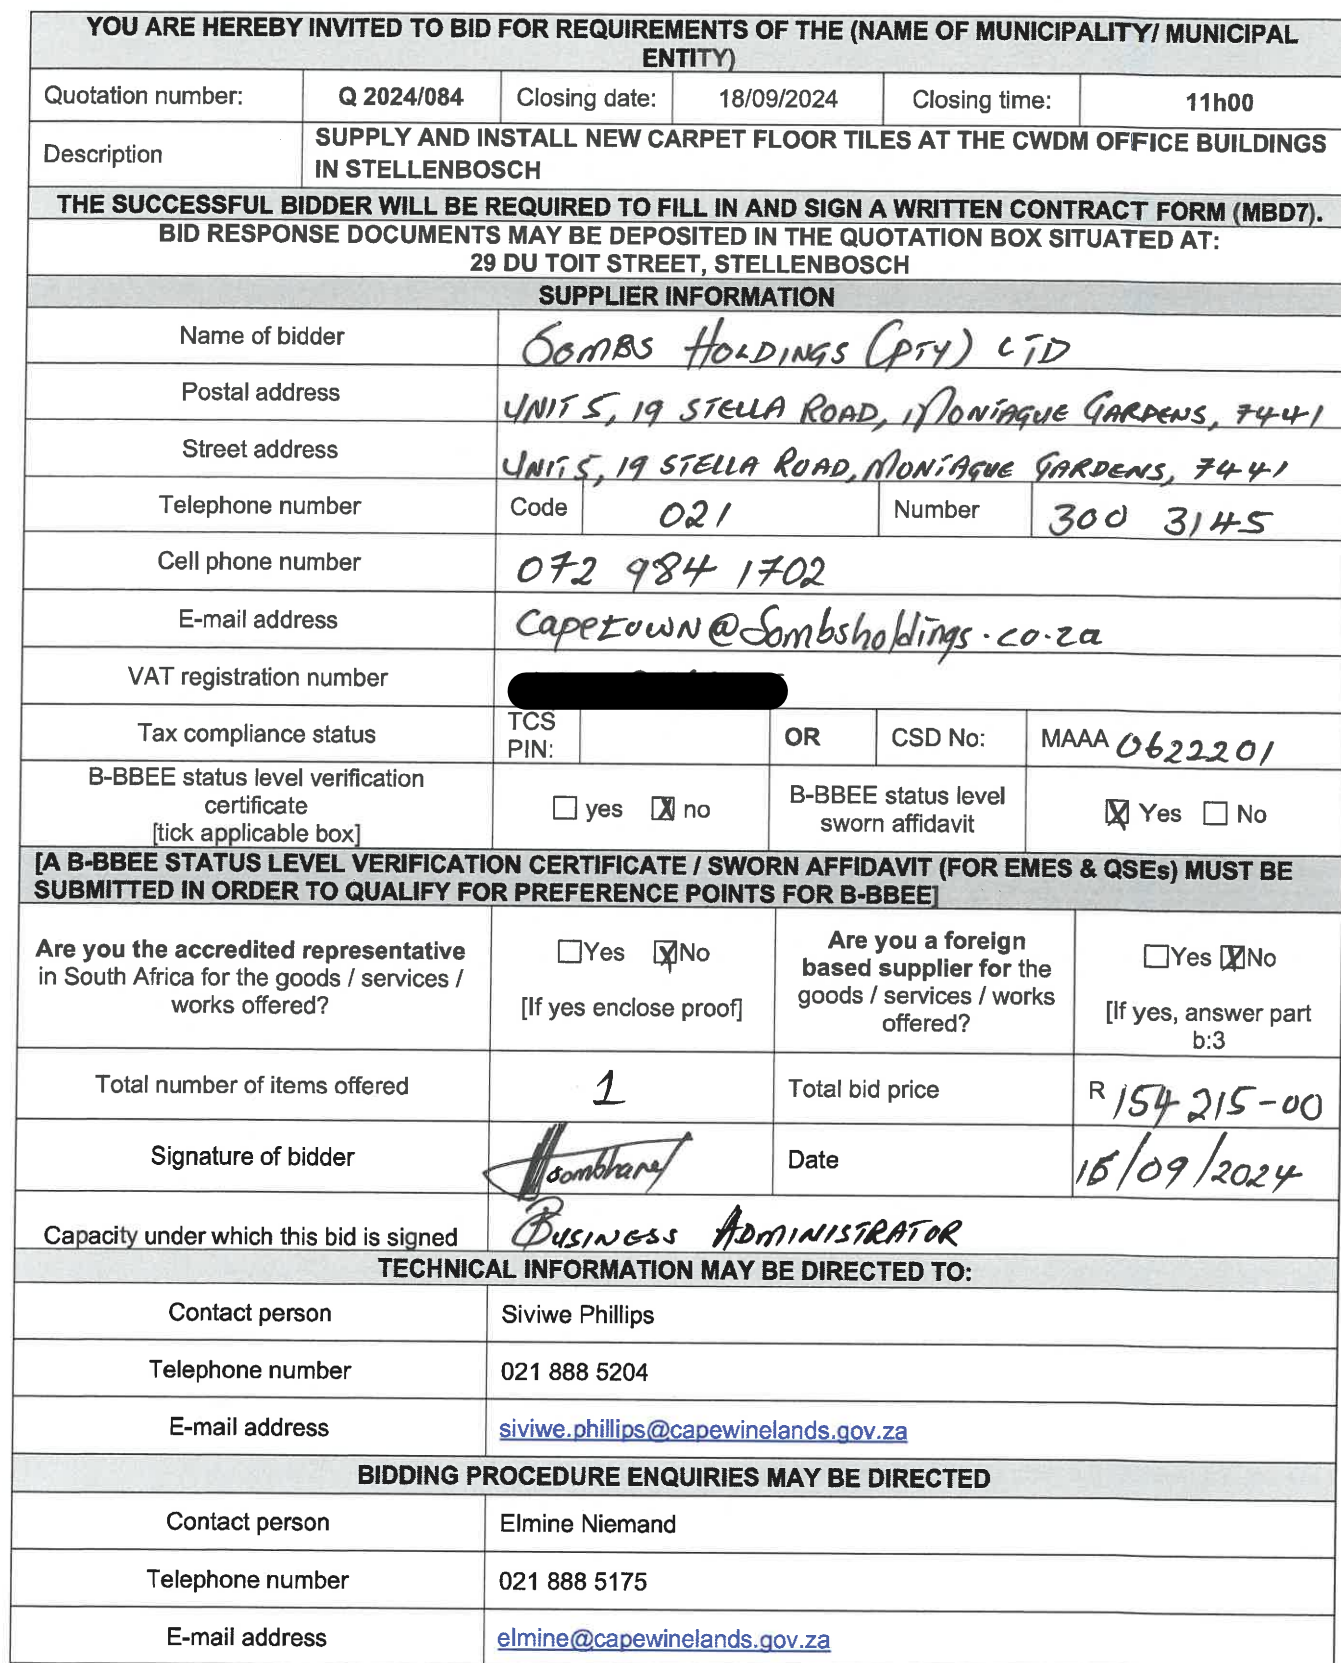 YOU ARE HEREBY INVITED TO BID FOR REQUIREMENTS OF THE (NAME OF MUNICIPALITY/ MUNICIPAL
ENTITY)
Quotation number: Q 2024/084 Closing date: 18/09/2024 Closing time: 11h00
Description SUPPLY AND INSTALL NEW CARPET FLOOR TILES AT THE CWDM OFFICE BUILDINGS
IN STELLENBOSCH
THE SUCCESSFUL BIDDER WILL BE REQUIRED TO FILL IN AND SIGN A WRITTEN CONTRACT FORM (MBD7).
BID RESPONSE DOCUMENTS MAY BE DEPOSITED IN THE QUOTATION BOX SITUATED AT:
29 DU TOIT STREET, STELLENBOSCH
SUPPLIER INFORMATION
Name of bidder SOMBS HOLDINGS (PTY) LTD
Postal address UNIT 5, 19 STELLA ROAD, MONTAGUE GARDENS, 7441
Street address UNIT 5, 19 STELLA ROAD, MONTAGUE GARDENS, 7441
Telephone number Code 021 Number 300 3145
Cell phone number 072 984 1702
E-mail address Capetown@Sombsholdings.co.za
VAT registration number
Tax compliance status TCS PIN: OR CSD No: MAAA 0622201
B-BBEE status level verification
certificate
[tick applicable box] yes X no B-BBEE status level
sworn affidavit X Yes No
[A B-BBEE STATUS LEVEL VERIFICATION CERTIFICATE / SWORN AFFIDAVIT (FOR EMES & QSEs) MUST BE
SUBMITTED IN ORDER TO QUALIFY FOR PREFERENCE POINTS FOR B-BBEE]
Are you the accredited representative
in South Africa for the goods / services /
works offered?
Yes X No
[If yes enclose proof]
Are you a foreign
based supplier for the
goods / services / works
offered?
Yes X No
[If yes, answer part
b:3
Total number of items offered 1 Total bid price R 154 215-00
Signature of bidder Sombhane Date 15/09/2024
Capacity under which this bid is signed BUSINESS ADMINISTRATOR
TECHNICAL INFORMATION MAY BE DIRECTED TO:
Contact person Siviwe Phillips
Telephone number 021 888 5204
E-mail address siviwe.phillips@capewinelands.gov.za
BIDDING PROCEDURE ENQUIRIES MAY BE DIRECTED
Contact person Elmine Niemand
Telephone number 021 888 5175
E-mail address elmine@capewinelands.gov.za